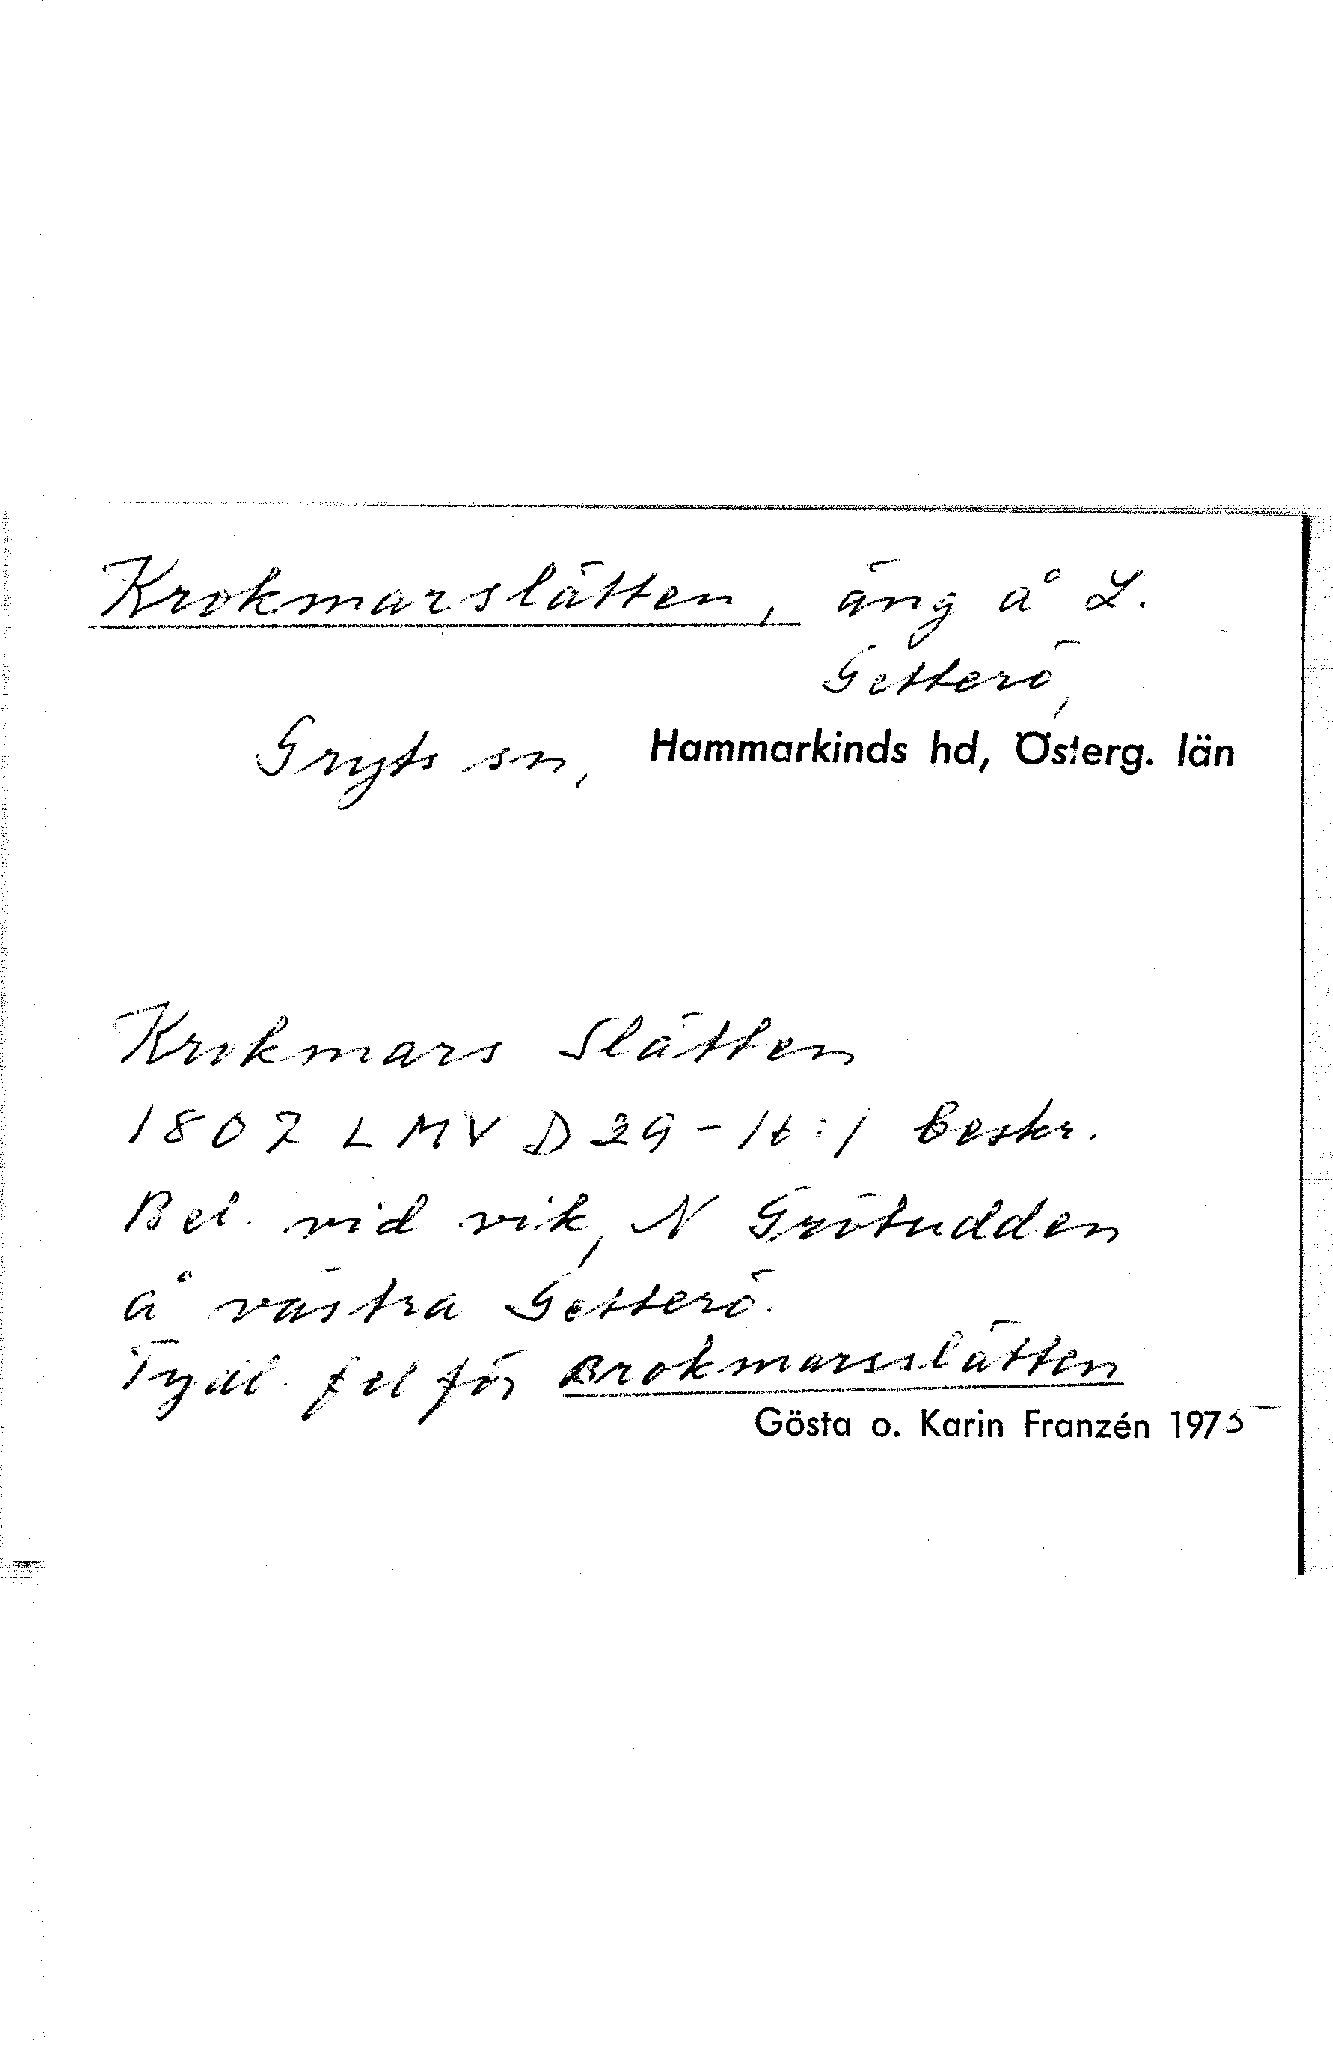 Krokmarslätten, äng å L.
Getterö,
Gryts sn, Hammarkinds hd, Österg. län
Krokmars Slätten
1807 LMV D29-16:1 beskr.
Bel. vid vik, N Grötudden
å västra Getterö.
Tydl. fel för Brokmarsslätten
Gösta o. Karin Franzén 1975